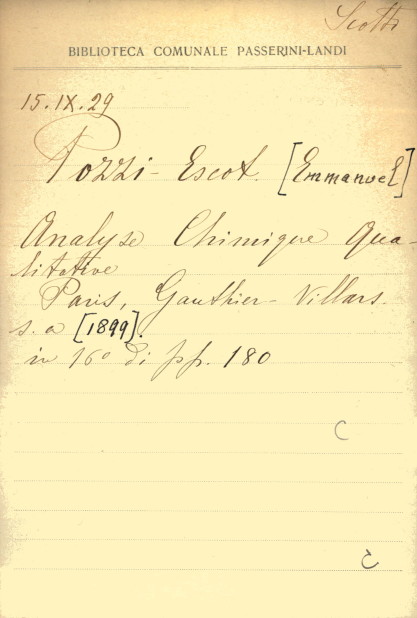 Scotti
BIBLIOTECA COMUNALE PASSERINI-LANDI
15.IX.29
Pozzi-Escot. [Emmanuel]
Analyse Chimique Qua-
litative
Paris, Gauthier-Villars.
s.a [1899].
in 16° di pp. 180
C
C